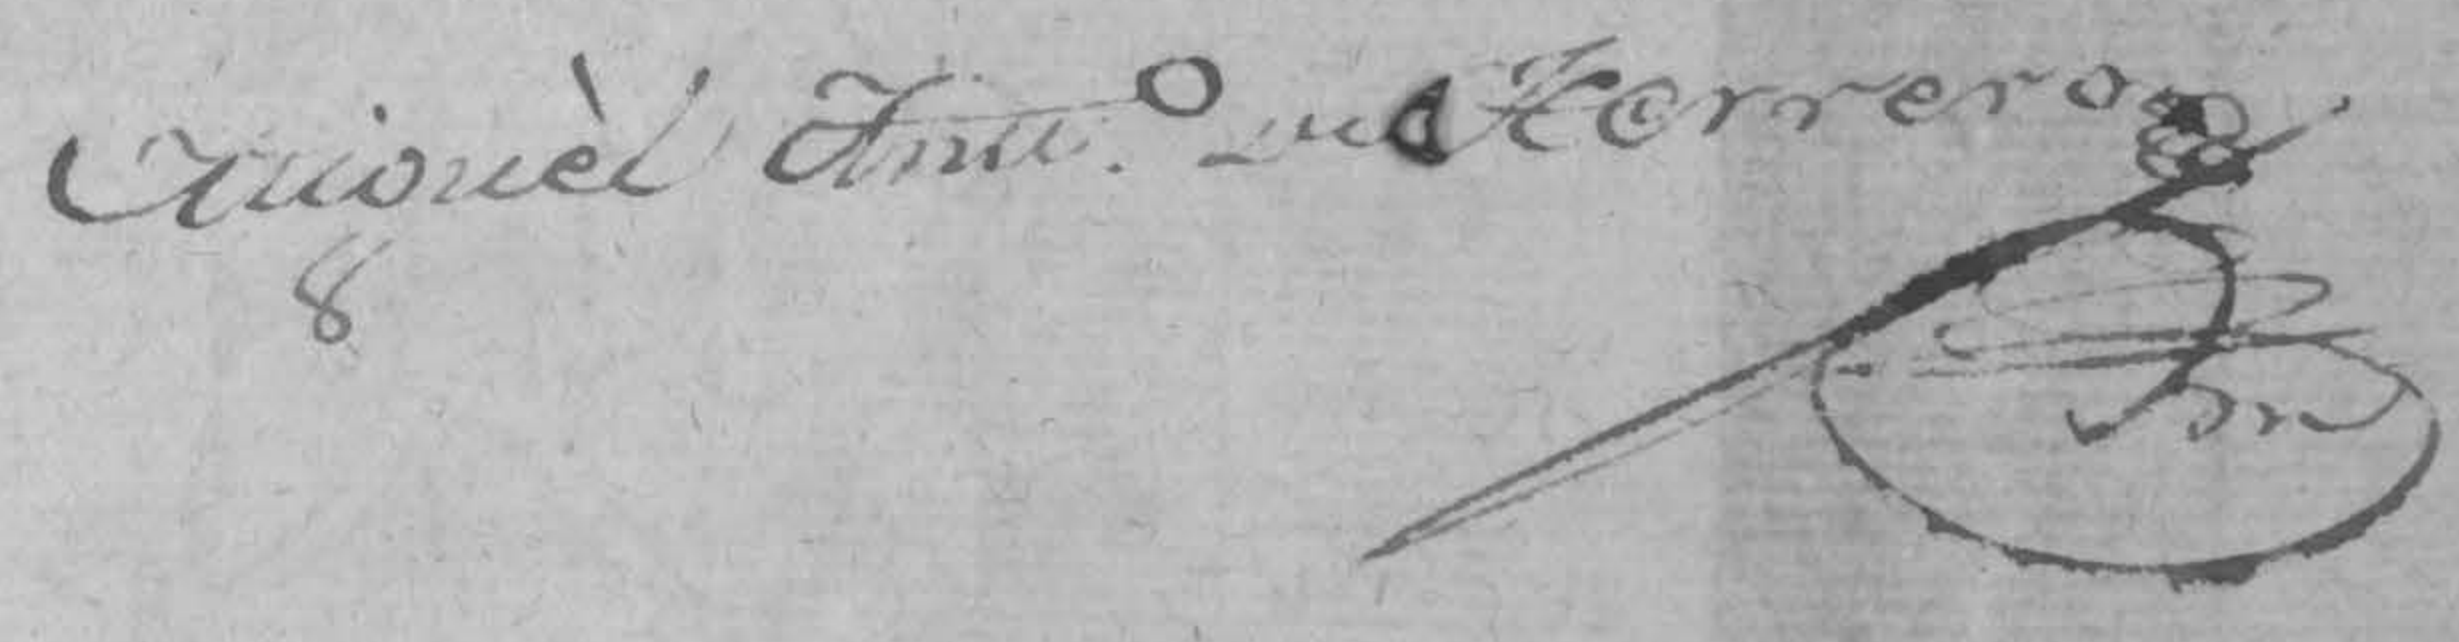 Miguèl Antt.º de Herrero